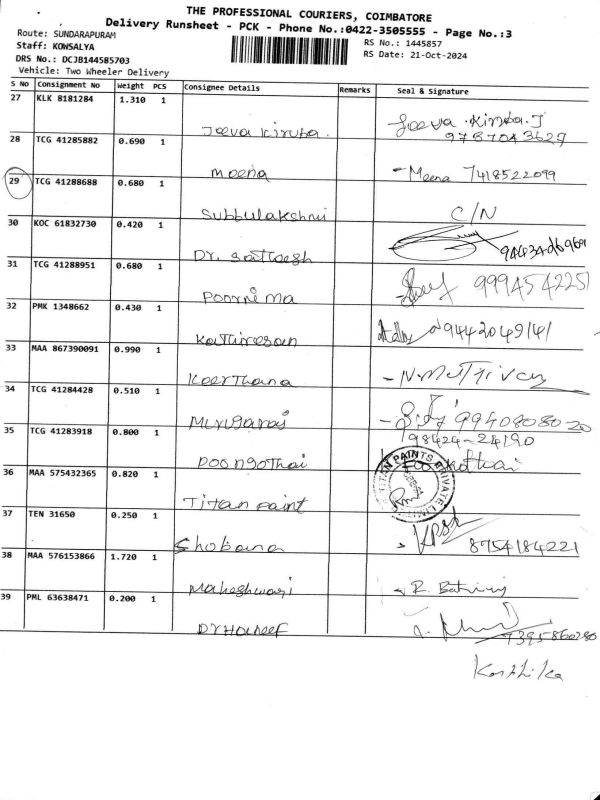 THE PROFESSIONAL COURIERS, COIMBATORE
Delivery Runsheet - PCK - Phone No.:0422-3505555 - Page No.:3
Route: SUNDARAPURAM
Staff: KOWSALYA
RS No.: 1445857
DRS No.: DCJB144585703
RS Date: 21-Oct-2024
Vehicle: Two Wheeler Delivery
S No Consignment No Weight PCS Consignee Details Remarks Seal & Signature
27 KLK 8181284 1.310 1
Jeeva Kiruba. Jeeva .Kiruba.J
9787043627
28 TCG 41285882 0.690 1
Meena - Meena 7418522099
29 TCG 41288688 0.680 1
Subbulakshmi C/N
30 KOC 61832730 0.420 1
Dr. Sathesh
31 TCG 41288951 0.680 1
Poornima 9994542251
32 PMK 1348662 0.430 1
Kathiresan 9442049141
33 MAA 867390091 0.990 1
Keerthana
34 TCG 41284428 0.510 1
Murugaraj 9940808020
35 TCG 41283918 0.800 1
98424-24190
Poongothai Poongothai
36 MAA 575432365 0.820 1
Titan paint TITAN PAINTS PRIVATE LIMITED
37 TEN 31650 0.250 1
Shobana 8754184221
38 MAA 576153866 1.720 1
Maheshwari
39 PML 63638471 0.200 1
Dr Haneef 7395860280
Karthika